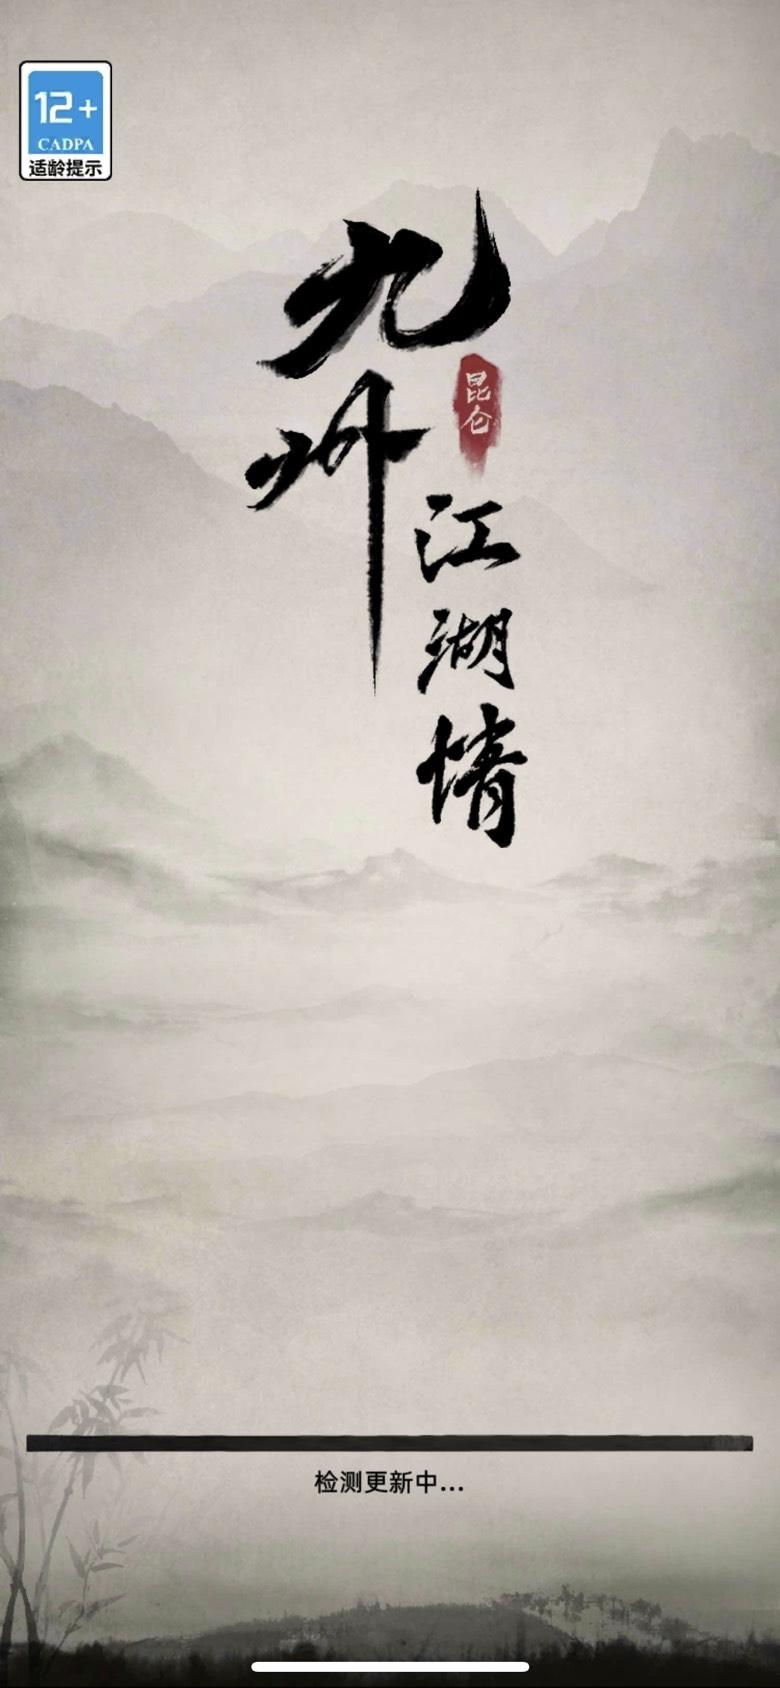 12+
CADPA
适龄提示
九州
昆仑
江湖情
检测更新中...